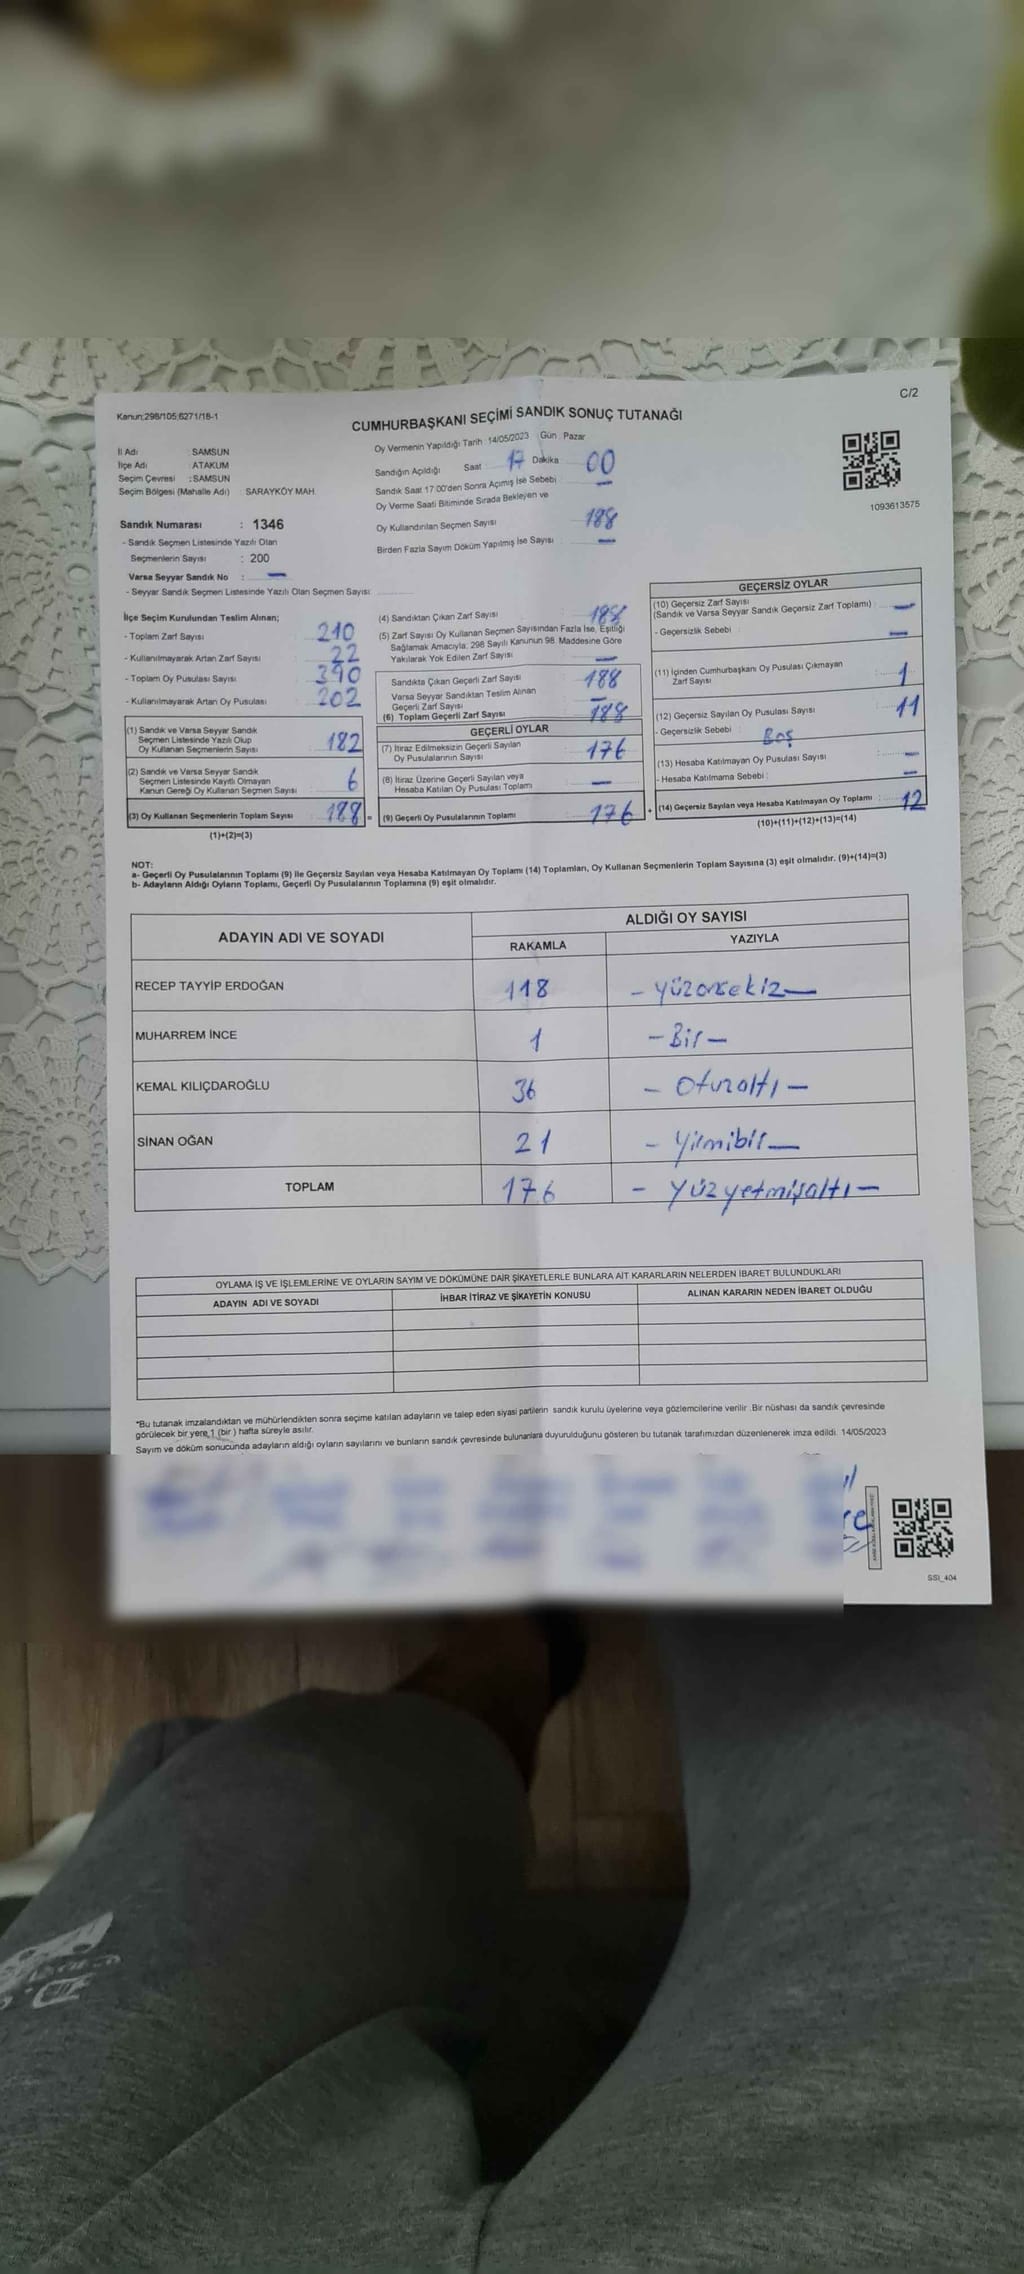 C/2
Kanun;298/105,6271/18-1
CUMHURBAŞKANI SEÇİMİ SANDIK SONUÇ TUTANAĞI
İl Adı : SAMSUN
İlçe Adı : ATAKUM
Seçim Çevresi : SAMSUN
Seçim Bölgesi (Mahalle Adı) : SARAYKÖY MAH.
Oy Vermenin Yapıldığı Tarih : 14/05/2023 Gün : Pazar
Sandığın Açıldığı Saat 17 Dakika 00
Sandık Saat 17:00'den Sonra Açımış İse Sebebi : —
Oy Verme Saati Bitiminde Sırada Bekleyen ve
Oy Kullandırılan Seçmen Sayısı 188
Birden Fazla Sayım Döküm Yapılmış İse Sayısı : —
1093613575
Sandık Numarası : 1346
- Sandık Seçmen Listesinde Yazılı Olan
Seçmenlerin Sayısı : 200
Varsa Seyyar Sandık No : —
- Seyyar Sandık Seçmen Listesinde Yazılı Olan Seçmen Sayısı :
İlçe Seçim Kurulundan Teslim Alınan;
- Toplam Zarf Sayısı : 210
- Kullanılmayarak Artan Zarf Sayısı : 22
- Toplam Oy Pusulası Sayısı : 390
- Kullanılmayarak Artan Oy Pusulası : 202
(1) Sandık ve Varsa Seyyar Sandık
Seçmen Listesinde Yazılı Olup
Oy Kullanan Seçmenlerin Sayısı : 182
(2) Sandık ve Varsa Seyyar Sandık
Seçmen Listesinde Kayıtlı Olmayan
Kanun Gereği Oy Kullanan Seçmen Sayısı : 6
(3) Oy Kullanan Seçmenlerin Toplam Sayısı : 188 =
(1)+(2)=(3)
(4) Sandıktan Çıkan Zarf Sayısı : 188
(5) Zarf Sayısı Oy Kullanan Seçmen Sayısından Fazla İse, Eşitliği
Sağlamak Amacıyla; 298 Sayılı Kanunun 98. Maddesine Göre
Yakılarak Yok Edilen Zarf Sayısı : —
Sandıkta Çıkan Geçerli Zarf Sayısı : 188
Varsa Seyyar Sandıktan Teslim Alınan
Geçerli Zarf Sayısı : —
(6) Toplam Geçerli Zarf Sayısı : 188
GEÇERLİ OYLAR
(7) İtiraz Edilmeksizin Geçerli Sayılan
Oy Pusulalarının Sayısı : 176
(8) İtiraz Üzerine Geçerli Sayılan veya
Hesaba Katılan Oy Pusulası Toplamı : —
(9) Geçerli Oy Pusulalarının Toplamı : 176 +
GEÇERSİZ OYLAR
(10) Geçersiz Zarf Sayısı
(Sandık ve Varsa Seyyar Sandık Geçersiz Zarf Toplamı) : —
- Geçersizlik Sebebi : —
(11) İçinden Cumhurbaşkanı Oy Pusulası Çıkmayan
Zarf Sayısı : 1
(12) Geçersiz Sayılan Oy Pusulası Sayısı : 11
- Geçersizlik Sebebi : Boş
(13) Hesaba Katılmayan Oy Pusulası Sayısı : —
- Hesaba Katılmama Sebebi : —
(14) Geçersiz Sayılan veya Hesaba Katılmayan Oy Toplamı : 12
(10)+(11)+(12)+(13)=(14)
NOT:
a- Geçerli Oy Pusulalarının Toplamı (9) ile Geçersiz Sayılan veya Hesaba Katılmayan Oy Toplamı (14) Toplamları, Oy Kullanan Seçmenlerin Toplam Sayısına (3) eşit olmalıdır. (9)+(14)=(3)
b- Adayların Aldığı Oyların Toplamı, Geçerli Oy Pusulalarının Toplamına (9) eşit olmalıdır.
ADAYIN ADI VE SOYADI ALDIĞI OY SAYISI
RAKAMLA YAZIYLA
RECEP TAYYİP ERDOĞAN 118 - yüzonsekiz —
MUHARREM İNCE 1 - Bir -
KEMAL KILIÇDAROĞLU 36 - Otuzaltı -
SİNAN OĞAN 21 - Yirmibir —
TOPLAM 176 - Yüzyetmişaltı -
OYLAMA İŞ VE İŞLEMLERİNE VE OYLARIN SAYIM VE DÖKÜMÜNE DAİR ŞİKAYETLERLE BUNLARA AİT KARARLARIN NELERDEN İBARET BULUNDUKLARI
ADAYIN ADI VE SOYADI İHBAR İTİRAZ VE ŞİKAYETİN KONUSU ALINAN KARARIN NEDEN İBARET OLDUĞU
*Bu tutanak imzalandıktan ve mühürlendikten sonra seçime katılan adayların ve talep eden siyasi partilerin sandık kurulu üyelerine veya gözlemcilerine verilir .Bir nüshası da sandık çevresinde
görülecek bir yere 1 (bir ) hafta süreyle asılır.
Sayım ve döküm sonucunda adayların aldığı oyların sayılarını ve bunların sandık çevresinde bulunanlara duyurulduğunu gösteren bu tutanak tarafımızdan düzenlenerek imza edildi. 14/05/2023
SSI_404